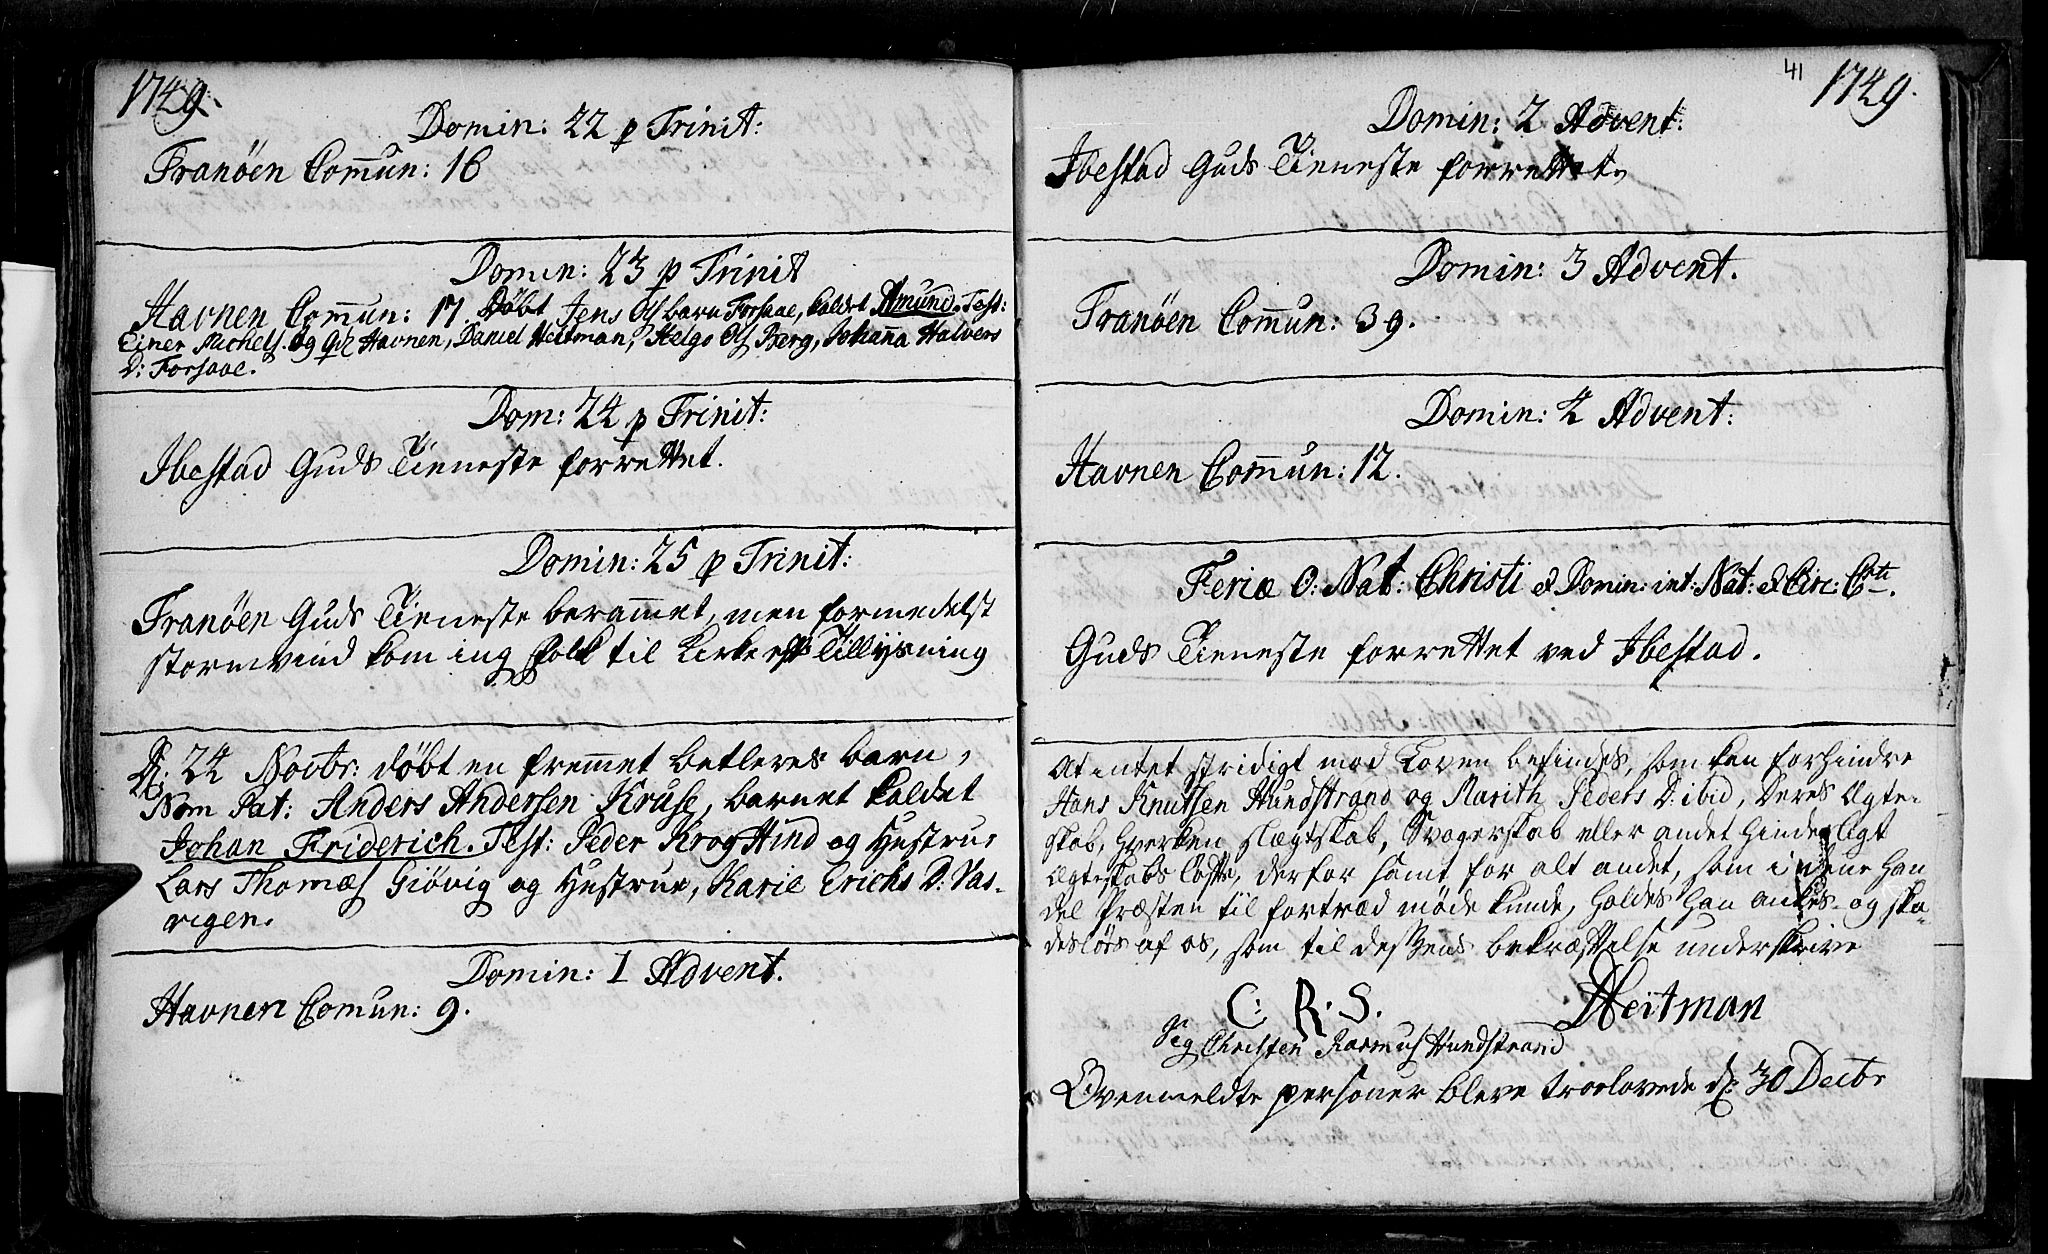 1749.
Domin: 22 p Trinit:
Tranöen Comun: 16
Domin: 23 p Trinit
Havnen Comun: 17. Döbt Jens Ols barn Forsaae, kaldet Amund. Test:
Einer Michels. og Qv: Havnen, Daniel Heitman, Helge Ols Berg, Johanna Halvors
D: Forsaae.
Dom: 24 p Trinit:
Ibestad Guds Tieneste forrettet.
Domin: 25 p Trinit:
Tranöen Guds Tieneste beramet, men formedelst
stormvind kom ing folk til Kirke eft: Tillysning
D: 24 Novbr: döbt en fremmet betleres barn,
Nom Pat: Anders Andersen Kruse, barnet kaldet
Johan Friderich. Test: Peder Krog Hind og Hustrue
Lars Thomæs Giövig og Hustrue, Karie Erichs D: Vas-
rigen.
Domin: 1 Advent.
Havnen Comun: 9.
41
1749.
Domin: 2 Advent:
Ibestad Guds Tieneste forrettet,
Domin: 3 Advent.
Tranöen Comun: 39.
Domin: 4 Advent:
Havnen Comun: 12.
Feriæ O: Nat: Christi & Domin: int: Nat: & Circ: Cti.
Guds Tieneste forrettet ved Ibestad.
At intet stridigt mod Loven befindes, som kan forhindre
Hans Knutsen Hundstrand og Marith Peders D: ibid, Deres Ægte-
skab, hverken slægtskab, Svogerskab eller andet hinderligt
Ægteskabs löfte, derfor samt for alt andet, som i denne han
del Præsten til fortræd möde kunde, holdes han ankes- og ska-
deslös af os, som til dessens bekræftelse underskrive
C: R: S. DHeitman
Sig Christen Rasmus Hundstrand
Ovenmeldte personer bleve troelovede d: 30 Decbr